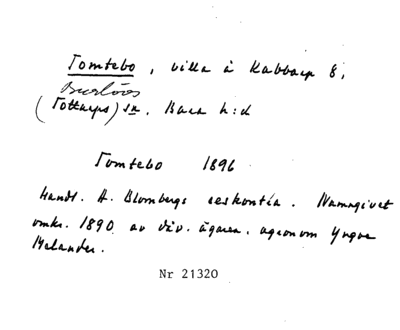 Tomtebo, villa å Kabbarp 8,
Burlövs
(Tottarps) sn, Bara h:d
Tomtebo 1896
Handl. A. Blombergs eeskontia. Namngivet
omkr. 1890 av dåv. ägaren, agronom Yngve
Melander.
Nr 21320